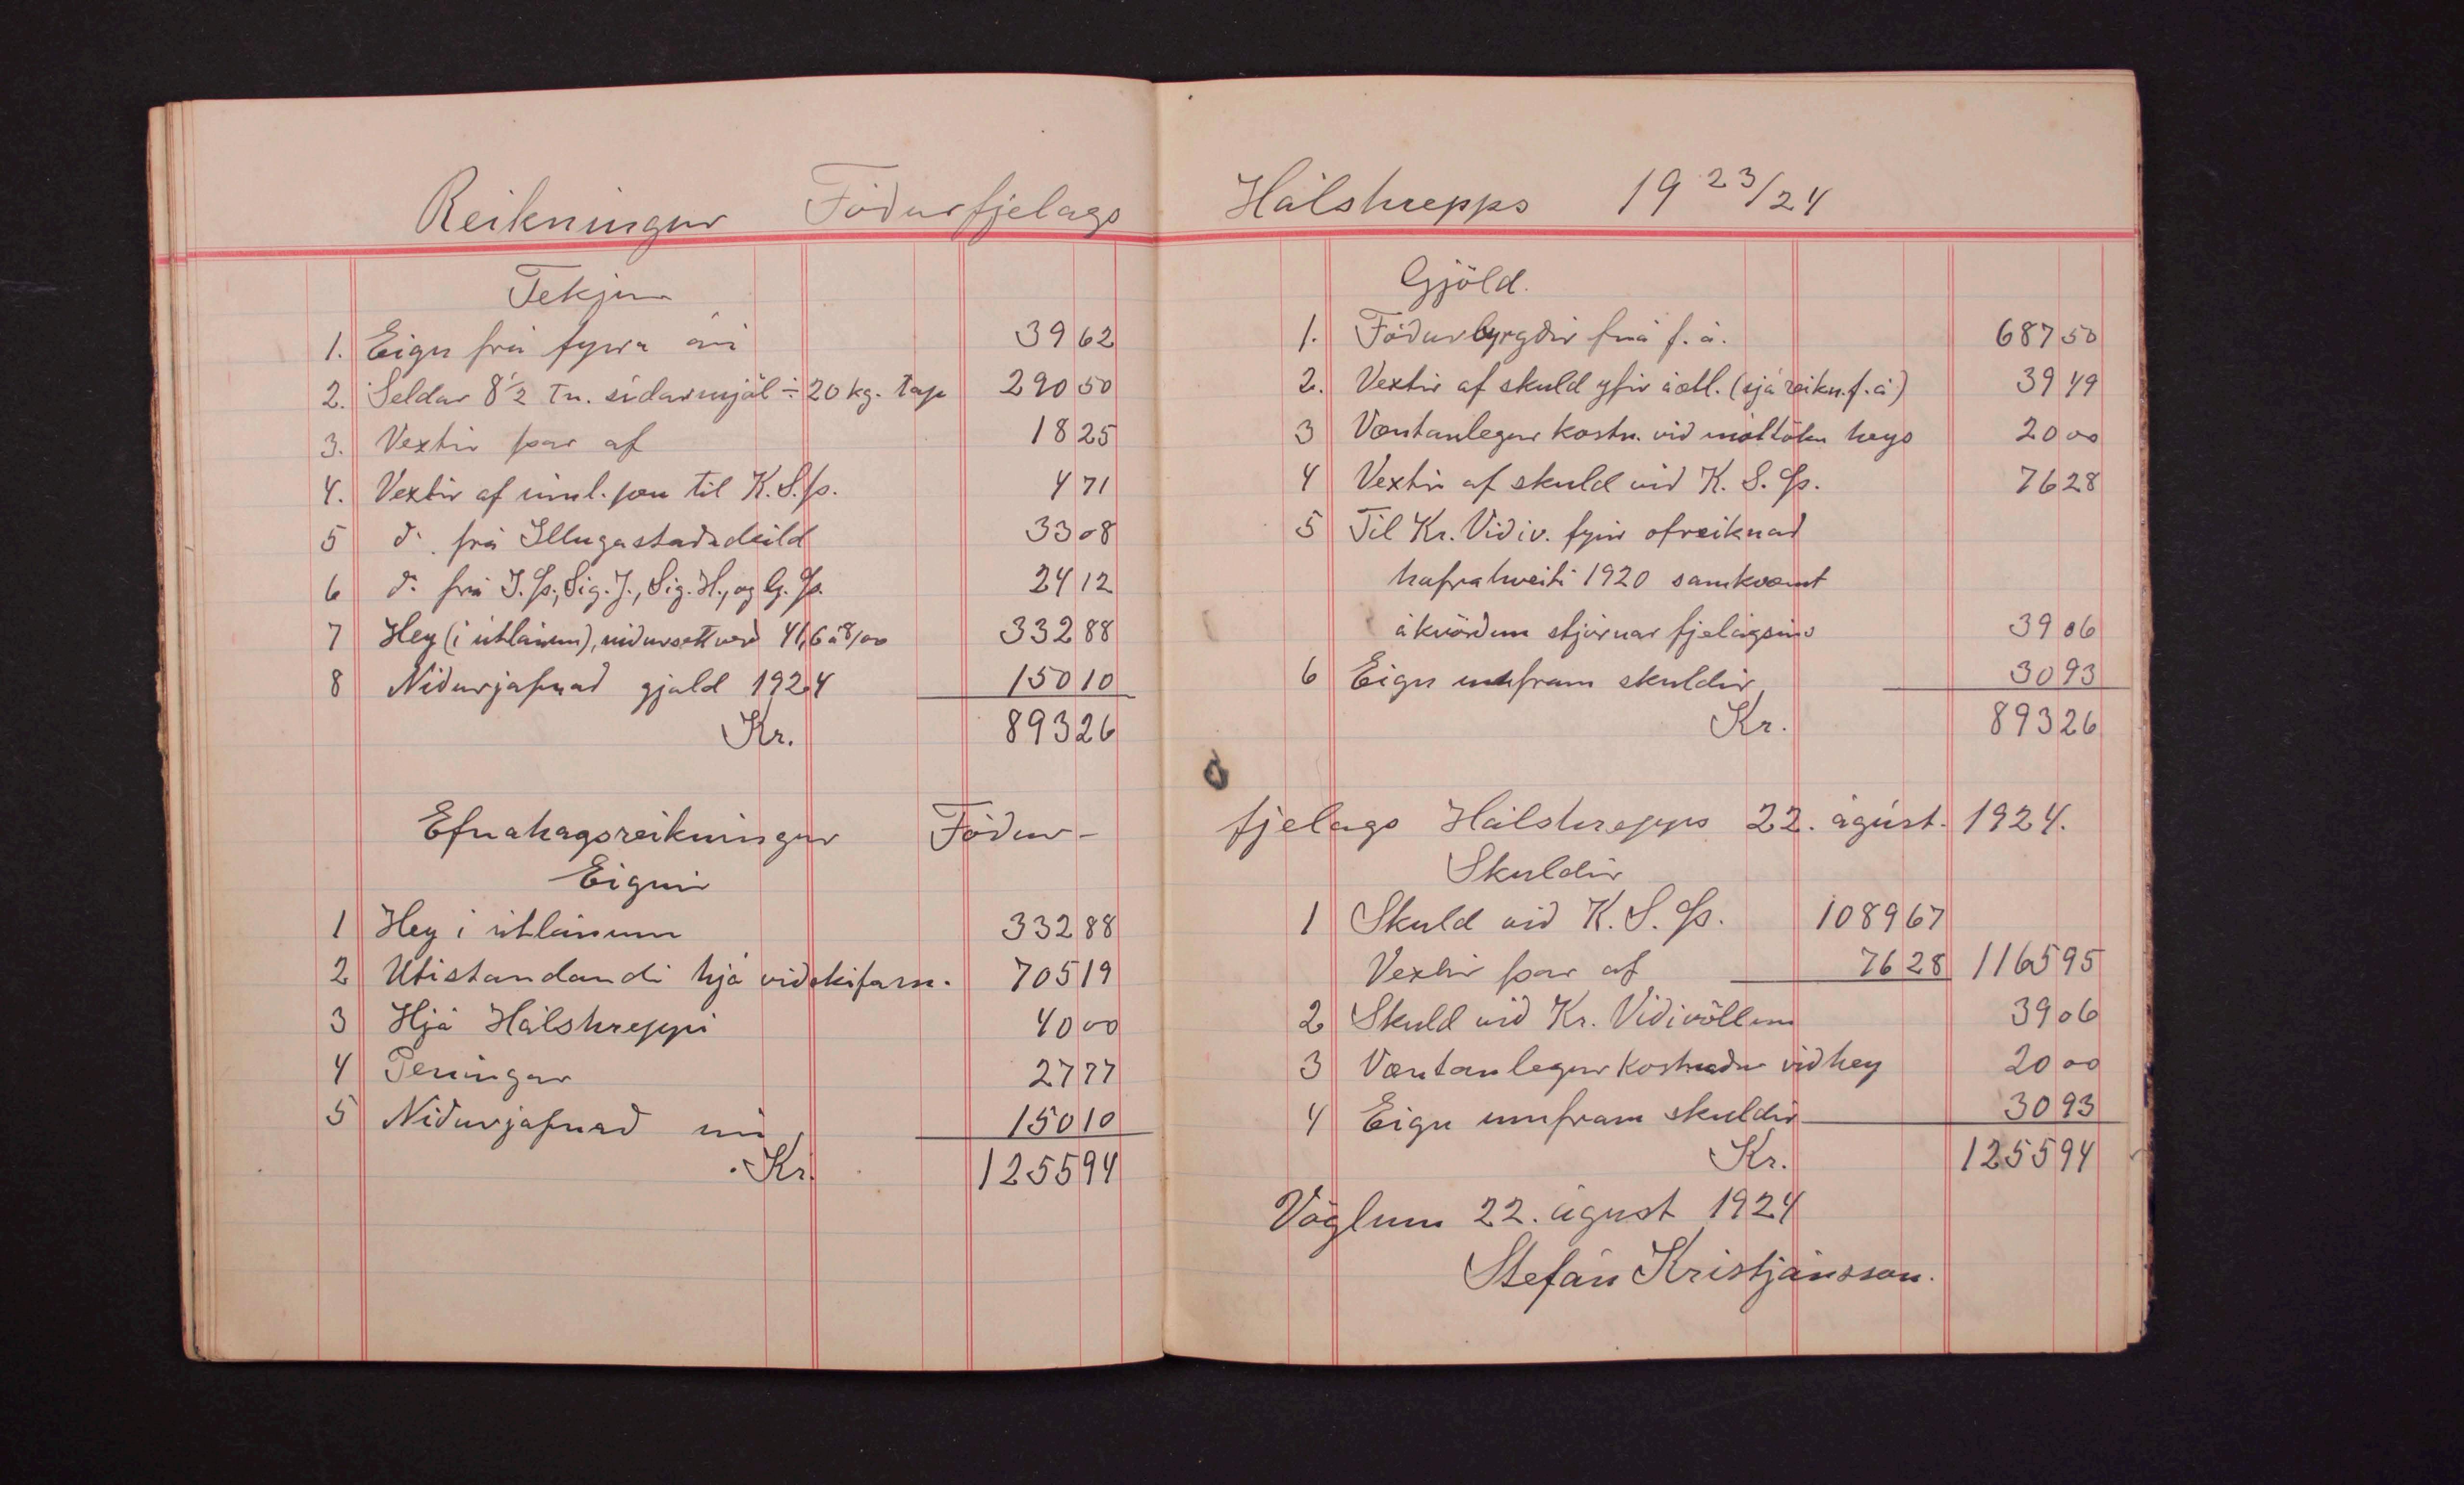 Reikningur Fóðurfjelags
Tekjur
1. Eign frá fyrra ári 39 62
2. Seldar 8 1/2 Tn. sídarmjöl ÷ 20 kg. tap 290 50
3. Vextir þar af 18 25
4. Vextir af innl. þau til K.S.Þ. 4 71
5 do. frá Illugastaðadeild 33 08
6 do. frá J.Þ., Sig. J., Sig. H., og G. Þ. 24 12
7 Hey (í útlánum), niðursett verð 41,6 á 8/00 332 88
8 Niðurjafnað gjald 1924 150 10
Kr. 893 26
Efnahagsreikningur Fóður-
Eignir
1 Hey í útlánum 332 88
2 Utistandandi hjá viðskifam. 705 19
3 Hjá Hálshreppi 40 00
4 Peningar 27 77
5 Niðurjafnað nú 150 10
Kr. 1255 94
Hálshrepps 19 23/24
Gjöld.
1. Fóðurbyrgðir frá f. á. 687 50
2. Vextir af skuld yfir áætl. (sjá reikn. f. á) 39 49
3 Væntanlegur kostn. við móttöku heys 20 00
4 Vextir af skuld við K. S. Þ. 76 28
5 Til Kr. Vidiv. fyrir ofreiknað
hafrahveiti 1920 samkvæmt
ákvörðun stjórnar fjelagsins 39 06
6 Eign umfram skuldir 30 93
Kr. 893 26
fjelags Hálshrepps 22. ágúst. 1924.
Skuldir
1 Skuld við K. S. Þ. 1089 67
Vextir þar af 76 28 1165 95
2 Skuld við Kr. Vidivöllum 39 06
3 Væntanlegur kostnaður við hey 20 00
4 Eign umfram skuldir 30 93
Kr. 1255 94
Vöglum 22. ágúst 1924
Stefán Kristjánsson.